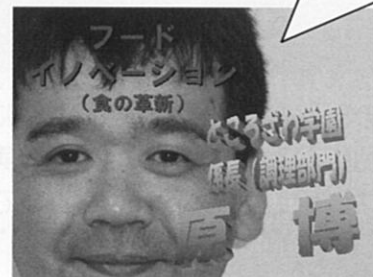 フード
イノベーション
(食の革新)
ところざわ学園
係長(調理部門)
原 博